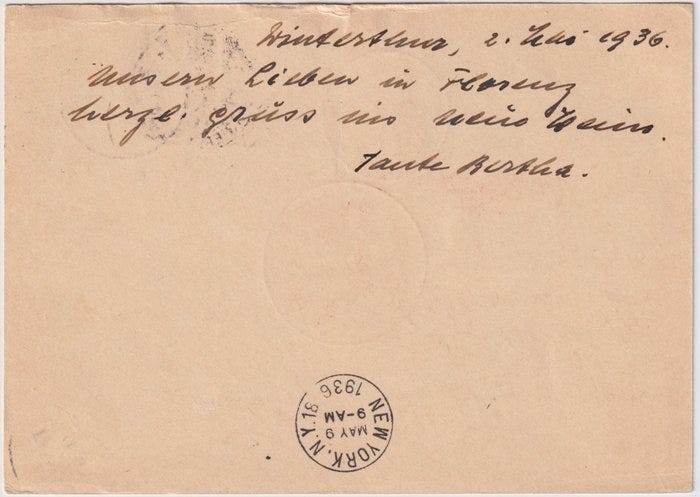 Winterthur, 2. Mai 1936.
Unsern Lieben in Florenz
herzl. Gruss ins neue Heim.
Tante Bertha.
NEW YORK, N.Y. 18
MAY 9
9-AM
1936